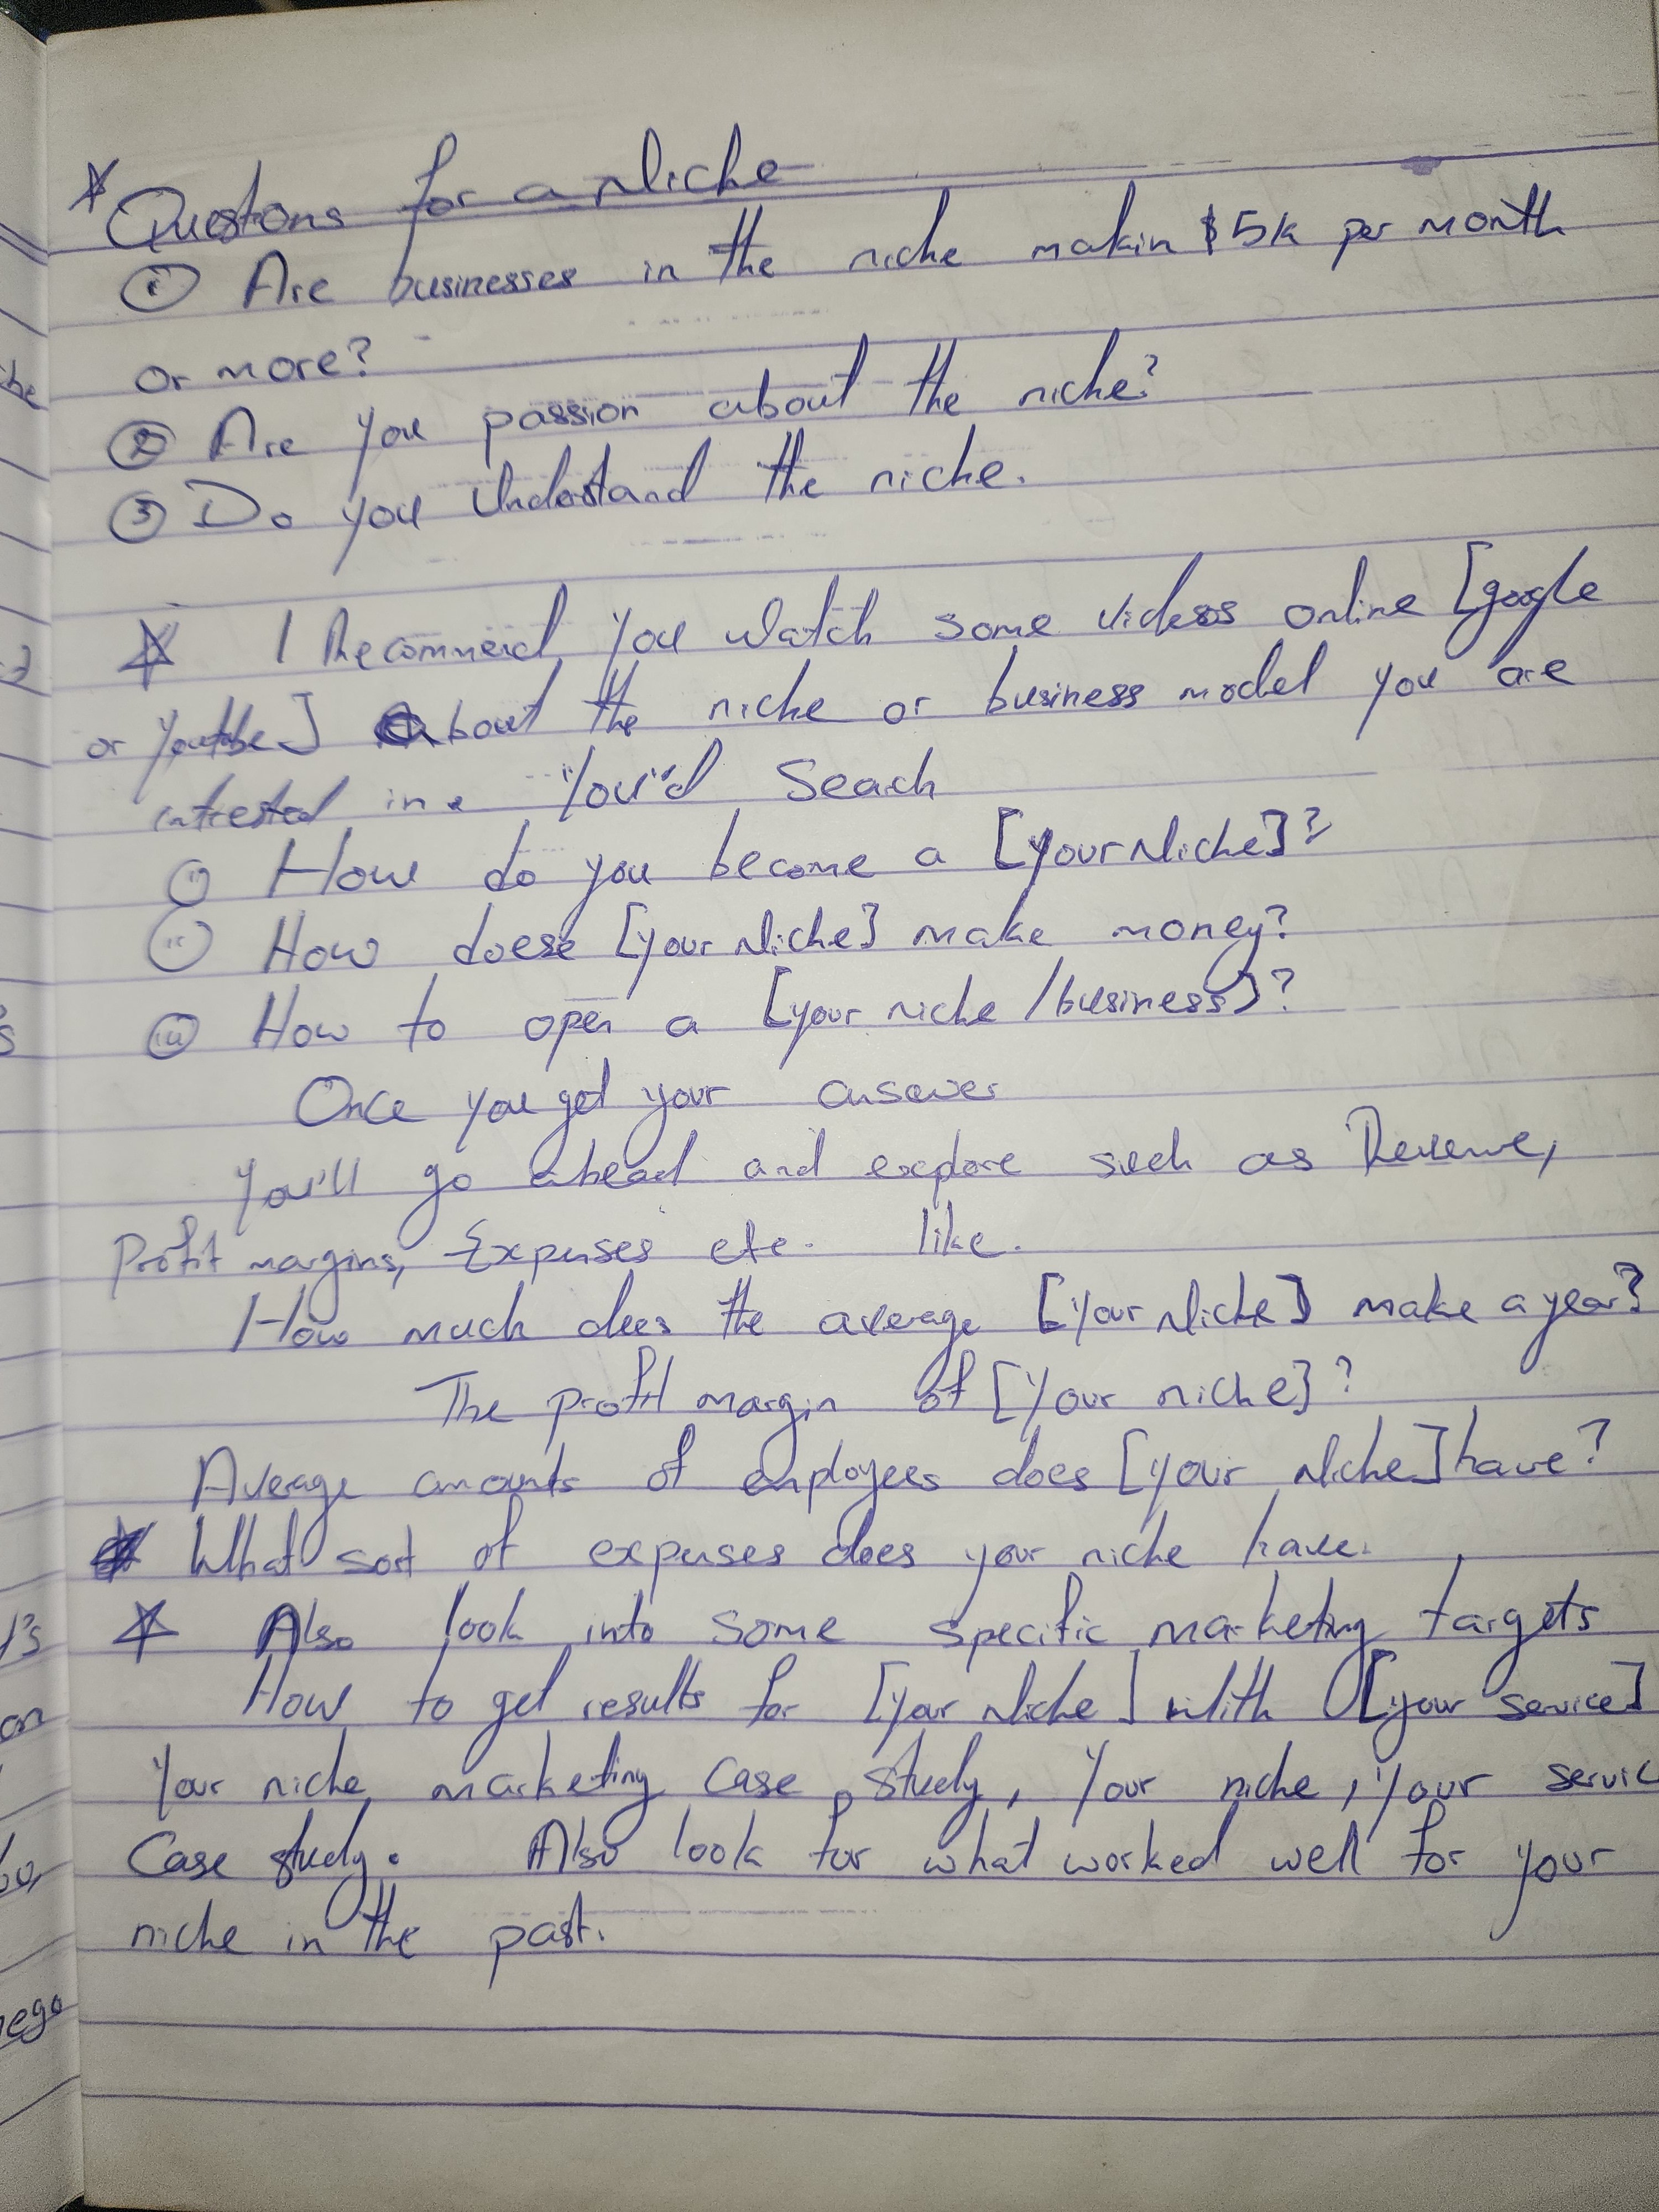 * Questions for a Niche
① Are businesses in the niche makin $5k per month
or more?
② Are you passion about the niche?
③ Do you Understand the niche.
☆ I Recommend you Watch some videos online [google
or Youtube] about the niche or business model you are
intrested in. You'd Seach
(i) How do you become a [your Niche]?
(ii) How doese [your Niche] make money?
(iii) How to open a [your niche / business]?
Once you get your answer
You'll go ahead and explore such as Revenue,
Profit margins, Expenses etc. like.
How much does the average [Your Niche] make a year?
The profit margin of [Your niche]?
Average amounts of employees does [your Niche] have?
What sort of expenses does your niche have.
☆ Also look into some specific marketing targets
How to get results for [Your Niche] With [your service]
Your niche marketing Case study, Your niche, Your servic
Case study. Also look for what worked well for your
niche in the past.